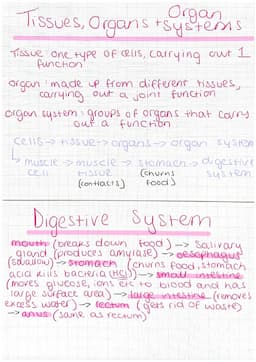 Tissues, Organs + Organ Systems
Tissue: one type of cells, carrying out 1
function
organ: made up from different tissues,
carrying out a joint function
organ system: groups of organs that carry
out a function
cells → tissue → organs → organ system
↳ muscle → muscle → stomach → digestive
cell tissue (churns system
(contracts) food)
Digestive System
mouth (breaks down food) → Salivary
gland (produces amylase) → oesophagus
(swallow) → stomach (churns food, stomach
acid kills bacteria (HCl)) → small intestine
(moves glucose, ions etc to blood and has
large surface area) → large intestine (removes
excess water) → rectum (gets rid of waste)
→ anus (same as rectum)